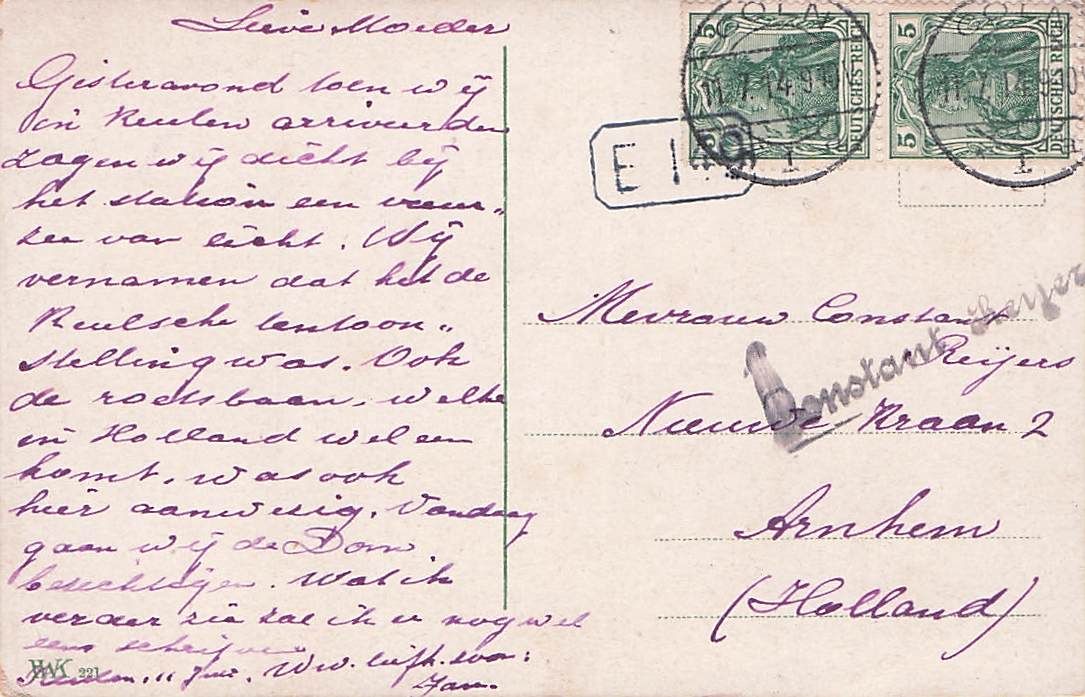 Lieve Moeder
Gisteravond toen wij
in Keulen arriveerden
zagen wij dicht bij
het station een vuur„
zee van licht. Wij
vernamen dat het de
Keulsche tentoon„
stelling was. Ook
de roetsbaan, welke
in Holland wel een
komt, was ook
hier aanwezig. Vandaag
gaan wij de Dom
bezichtigen. Wat ik
verder zie zal ik u nog wel
eens schrijven
Keulen, 11 Juli. Uw. liefh. zoon:
Jan.
HWK 221
CÖLN
11.7.14.9
1
CÖLN
11.7.14.8
1
5
DEUTSCHES REICH
5
DEUTSCHES REICH
E 1
Mevrouw Constant
Reijers
Constant Reyers
Nieuwe Kraan 2
Arnhem
(Holland)